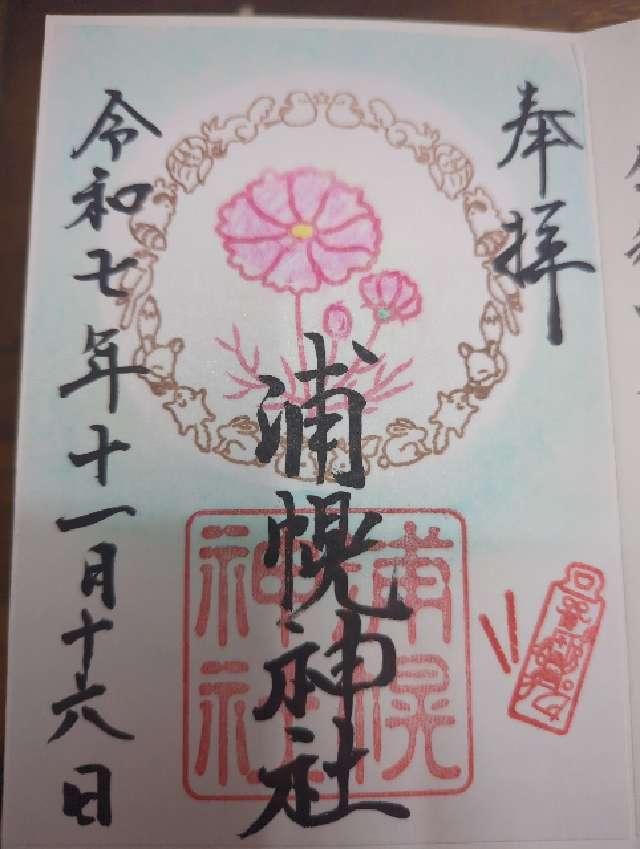 奉拝
浦幌神社
浦幌
神社
令和七年十一月十六日